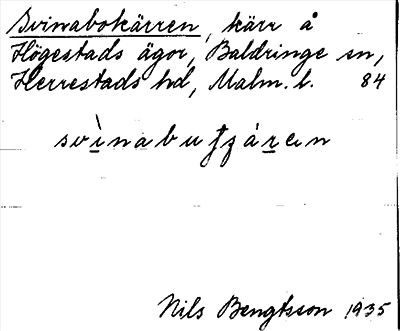 Svinabokärren, kärr å
Högestads ägor, Baldringe sn,
Herrestads hd, Malm. l. 84
Nils Bengtsson 1935